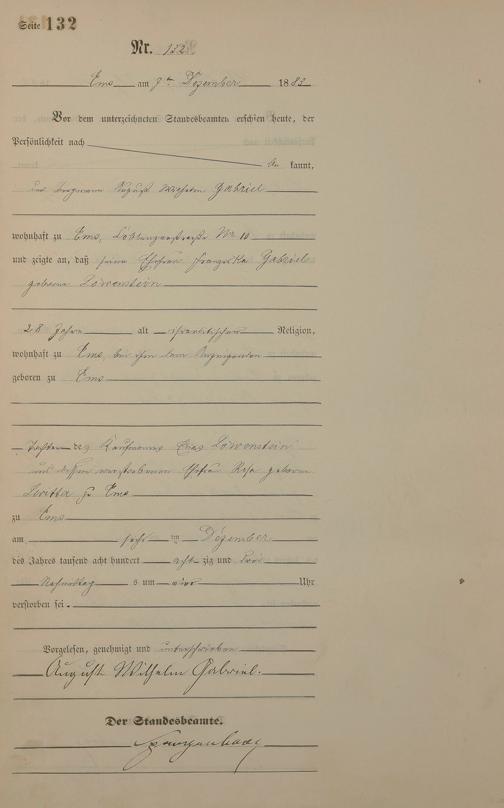 Seite 132
Nr. 132
Ems am 7ten Dezember 1883
Vor dem unterzeichneten Standesbeamten erschien heute, der
Persönlichkeit nach
be kannt,
der Bergmann August Wilhelm Gabriel
wohnhaft zu Ems, Coblenzerstraße Nr 10
und zeigte an, daß seine Ehefrau Franziska Gabriel
geborene Löwenstein
28 Jahre alt israelitischer Religion,
wohnhaft zu Ems, bei ihm dem Anzeigenden
geboren zu Ems
Tochter des Kaufmannes Löwenstein
und dessen verstorbenen Ehefrau Rosa geborene
zu Ems
zu Ems
am ten Dezember
des Jahres tausend acht hundert acht zig und drei
Nachmittag s um vier Uhr
verstorben sei.
Vorgelesen, genehmigt und unterschrieben
August Wilhelm Gabriel.
Der Standesbeamte.